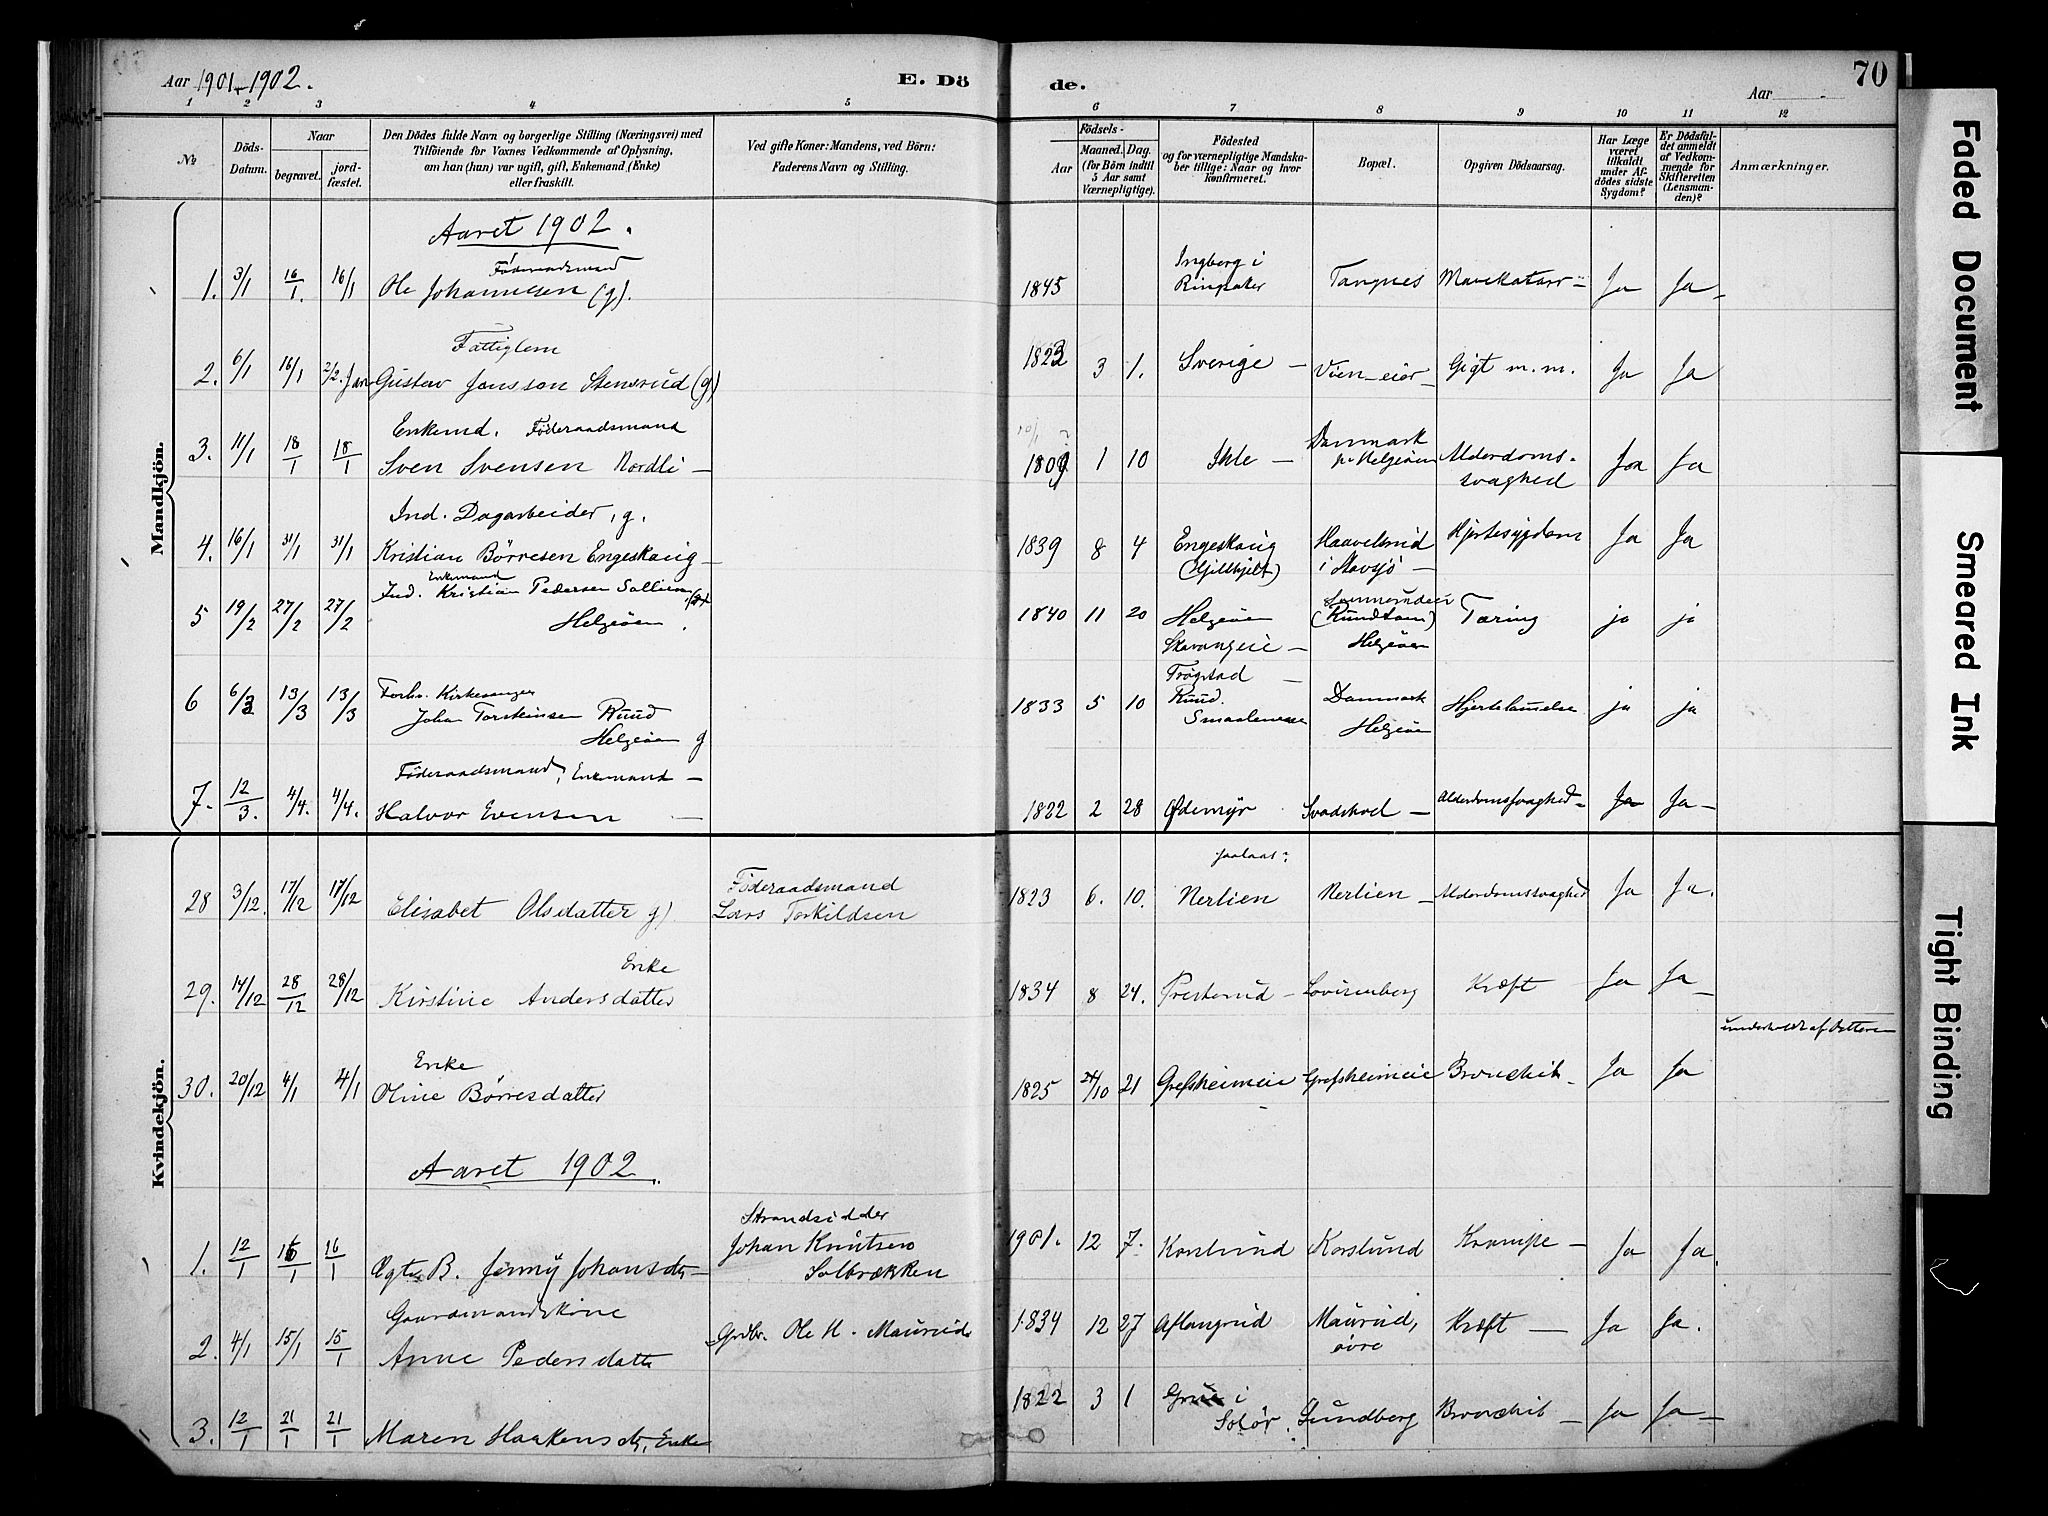 Aar 1901-1902.
E. Dö
de.
Aar
70
1 2 3 4 5 6 7 8 9 10 11 12
№
Döds-
Datum.
Naar
begravet.
jord-
fæstet.
Den Dödes fulde Navn og borgerlige Stilling (Næringsvei) med
Tilföiende for Voxnes Vedkommende af Oplysning,
om han (hun) var ugift, gift, Enkemand (Enke)
eller fraskilt.
Ved gifte Koner: Mandens, ved Börn:
Faderens Navn og Stilling.
Födsels-
Aar
Maaned. Dag.
(for Börn indtil
5 Aar samt
Værnepligtige).
Födested
og for værnepligtige Mandska-
ber tillige: Naar og hvor
konfirmeret.
Bopæl.
Opgiven Dödsaarsag.
Har Læge
været
tilkaldt
under Af-
dödes sidste
Sygdom?
Er Dödsfal-
det anmeldt
af Vedkom-
mende for
Skifteretten
(Lensman-
den)?
Anmærkninger.
Mandkjön.
Aaret 1902.
Föderaadsmand
1. 3/1 16/1 16/1 Ole Johannesen (g). 1845 Ingberg i
Ringsaker Tangnes Mavekatarr Ja Ja
Fattiglem
2. 6/1 16/1 2/2. Jan Gustav Jansson Stensrud (g) 1823 3 1. Sverige Vien eier Gigt m.m. Ja Ja
Enkemd. Föderaadsmand
3. 11/1 18/1 18/1 Sven Svensen Nordli 1809 1 10 Ihle Danmark
p. Helgeöen Alderdoms-
svaghed Jaa Ja
Ind. Dagarbeider, g.
4. 16/1 31/1 31/1 Kristian Börresen Engeskaug 1839 8 4 Engeskaug Haavelsrud
i Stavsjö Hjertesygdom Ja Ja
Enkemand
5 19/2 27/2 27/2 Ind. Kristian Pedersen Sollien
Helgeöen 1840 11 20 Helgeöen
Skavangeie
Helgeöen Tæring ja ja
6 6/3 13/3 13/3 Forhv. Kirkesanger
Johan Torsteinsen Ruud
Helgeöen g 1833 5 10 Trøgstad
Ruud.
Smaalenene Danmark
Helgeöen Hjertelammelse ja ja
Föderaadsmand, Enkemand
7. 12/3. 4/4. 4/4. Halvor Evensen 1822 2 28 Ødemyr Svadshod Alderdomssvaghed Ja Ja
Kvindekjön.
28 3/12. 17/12 17/12 Elisabet Olsdatter g) Föderaadsmand
Lars Torkildsen 1823 6. 10. Nerlien Nerlien Alderdomssvaghed Ja Ja.
Enke
29. 14/12 28/12 28/12 Kirstine Andersdatter 1834 8 24. Presterud Lovisenberg Kræft Ja Ja
underholdt af Datteren
Enke
30. 20/12 4/1 4/1 Oline Börresdatter 1825 24/10 21 Grefsheimeie Grefsheimeie Bronchit Ja Ja
Aaret 1902.
1. 12/1 16/1 16/1 Ægte B. Jenny Johansdr Strandsidder
Johan Knutsen
Solbrækken 1901. 12 7. Korslund Korslund Krampe Ja Ja.
Gaardmandskone
2. 4/1 15/1 15/1 Anne Pedersdatter Grdbr. Ole H. Maurud 1834 12 27 Aflangrud Maurud,
övre Kræft Ja Ja.
3. 12/1 21/1 21/1 Maren Haakensdr, Enke 1822 3 1 Grue i
Solör. Sundberg Bronchit Ja Ja
Faded Document
Smeared Ink
Tight Binding